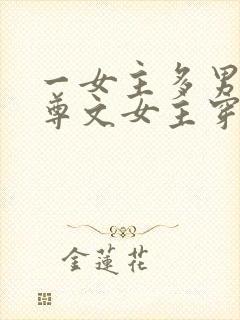 一女主多男
尊文女主穿
金蓮花